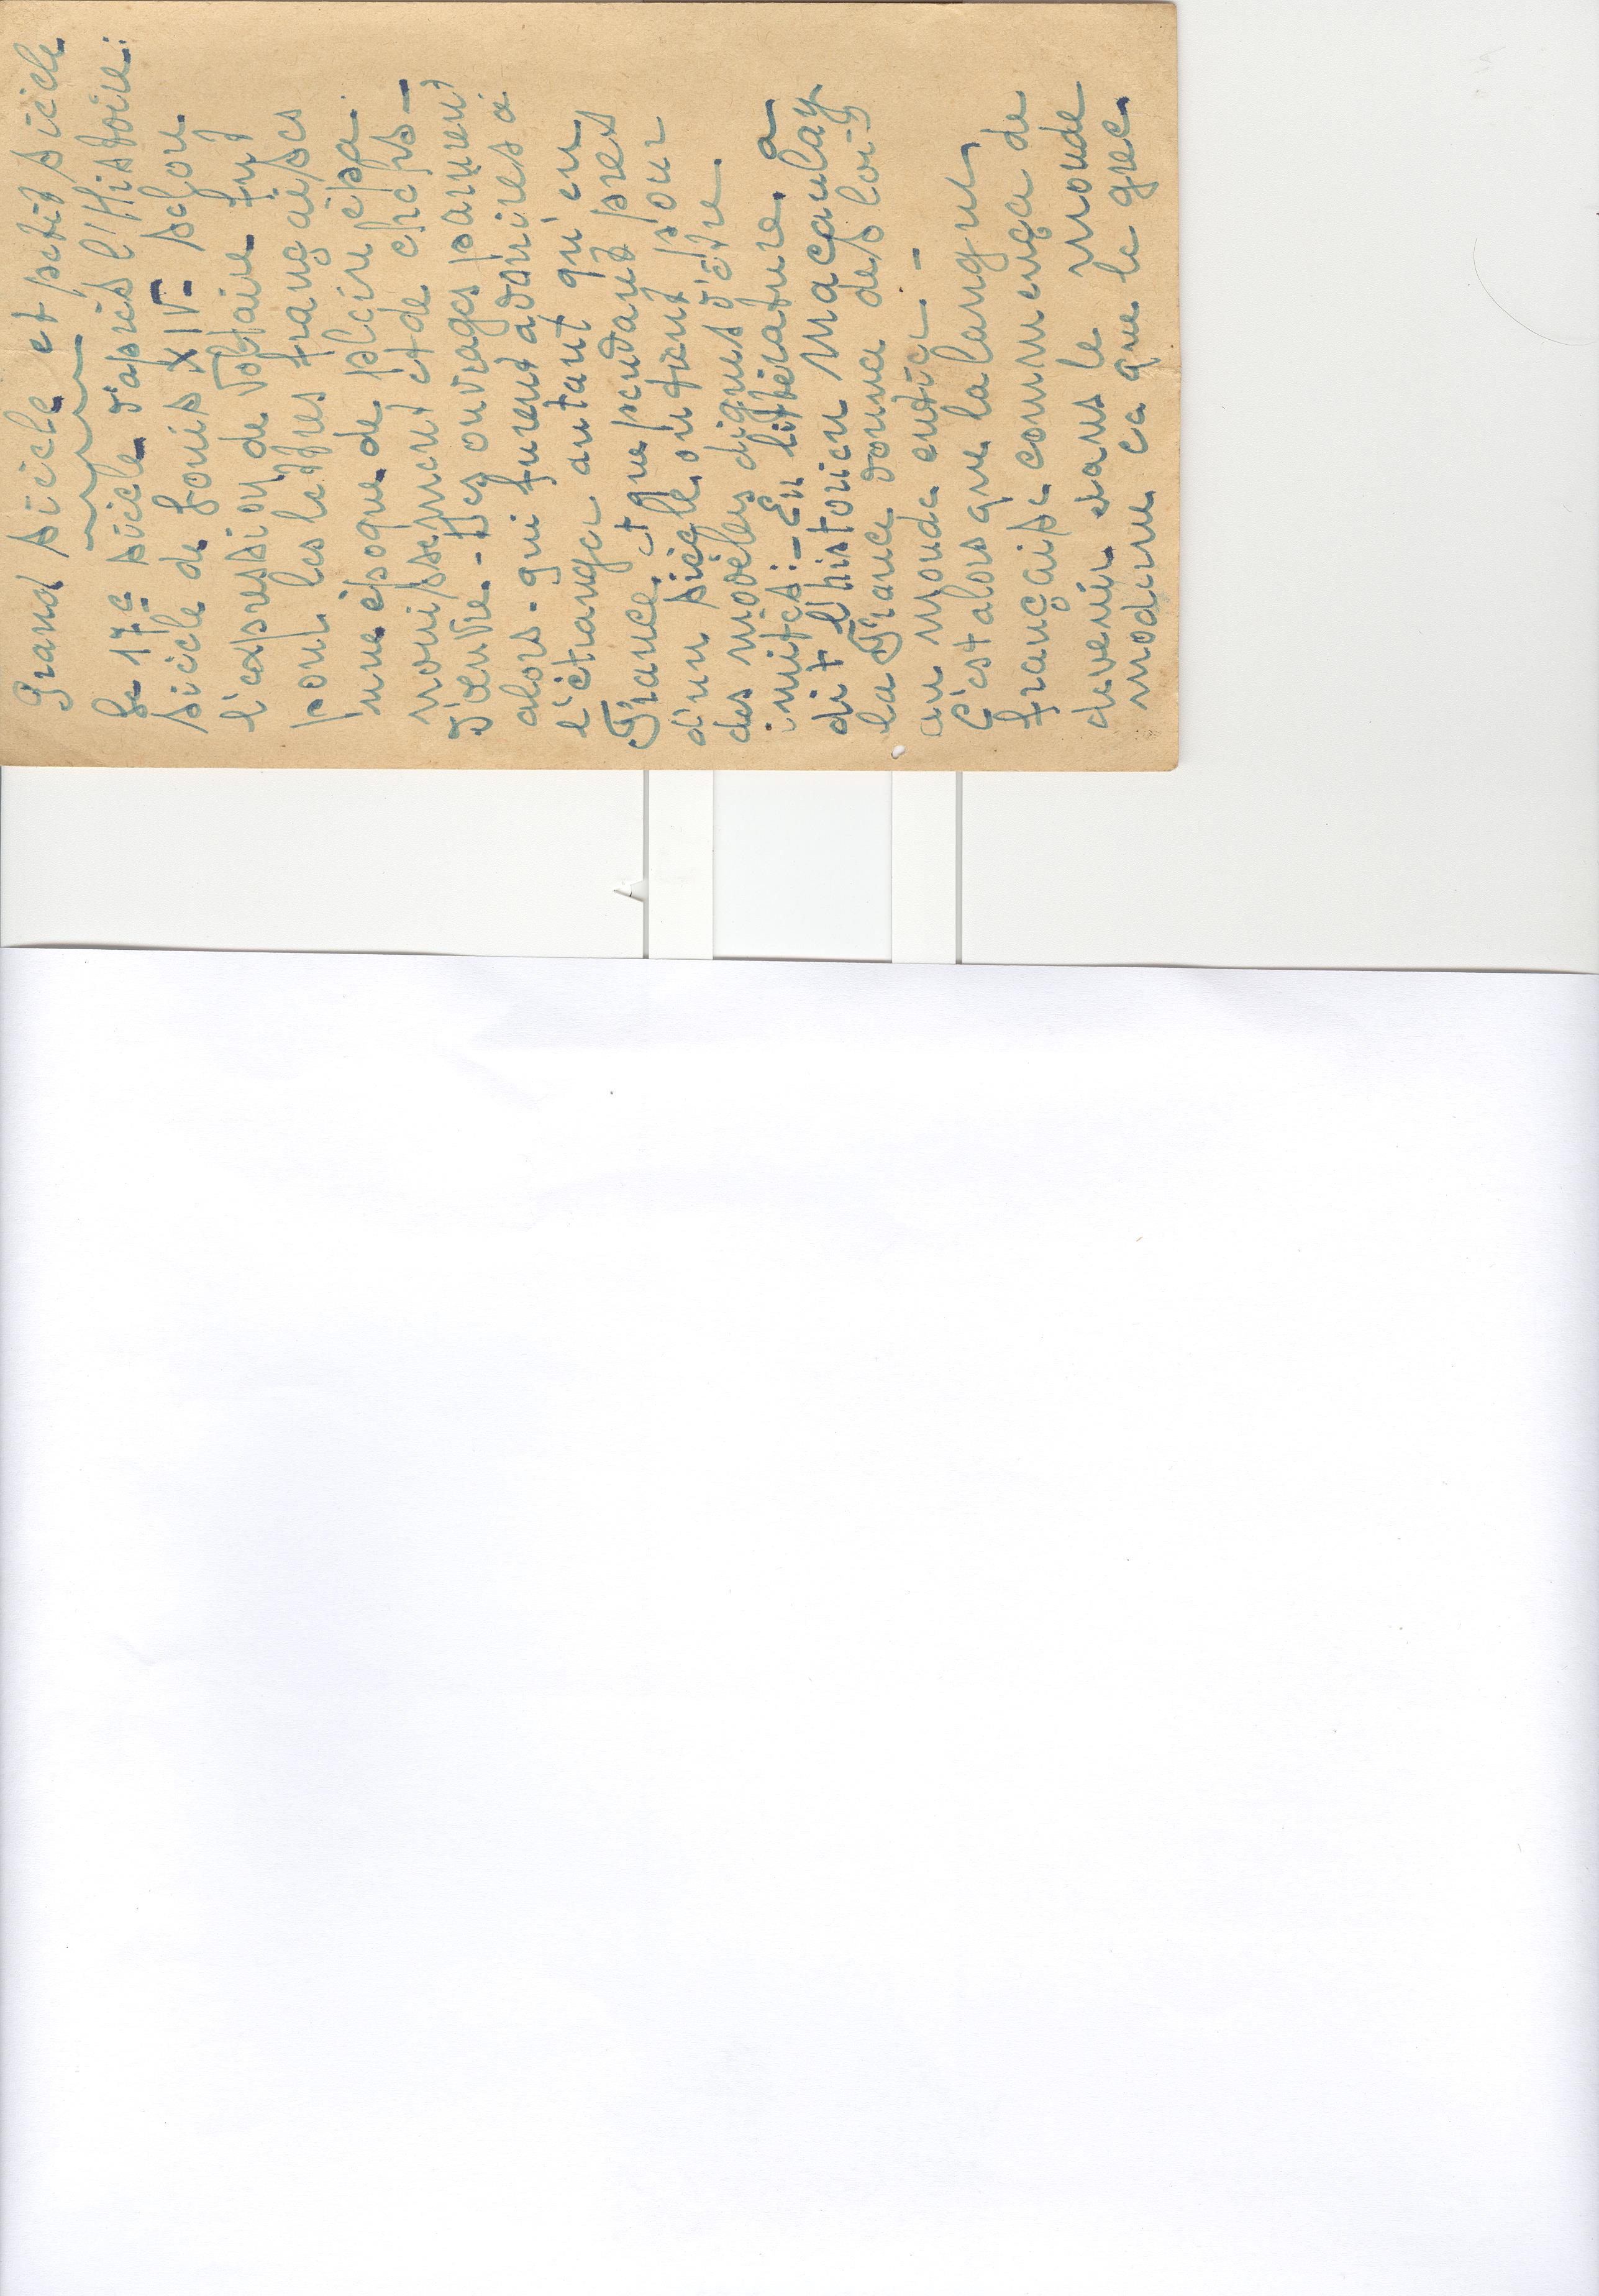 Grand siècle et petit siècle
Le 17e siècle d'après l'Histoire:
siècle de Louis XIV- selon
l'expression de Voltaire fut
pour les lettres françaises
une époque de plein épa-
nouissement et de chefs-
d'œuvre.- Des ouvrages parurent
alors- qui furent admirés à
l'étranger autant qu'en
France, et que pendant près
d'un siècle on tient pour
des modèles dignes d'être
imités:- En littérature, a
dit l'historien Macaulay
la France donna des lois
au monde entier.-
C'est alors que la langue
française commença de
devenir dans le monde
moderne ce que le grec